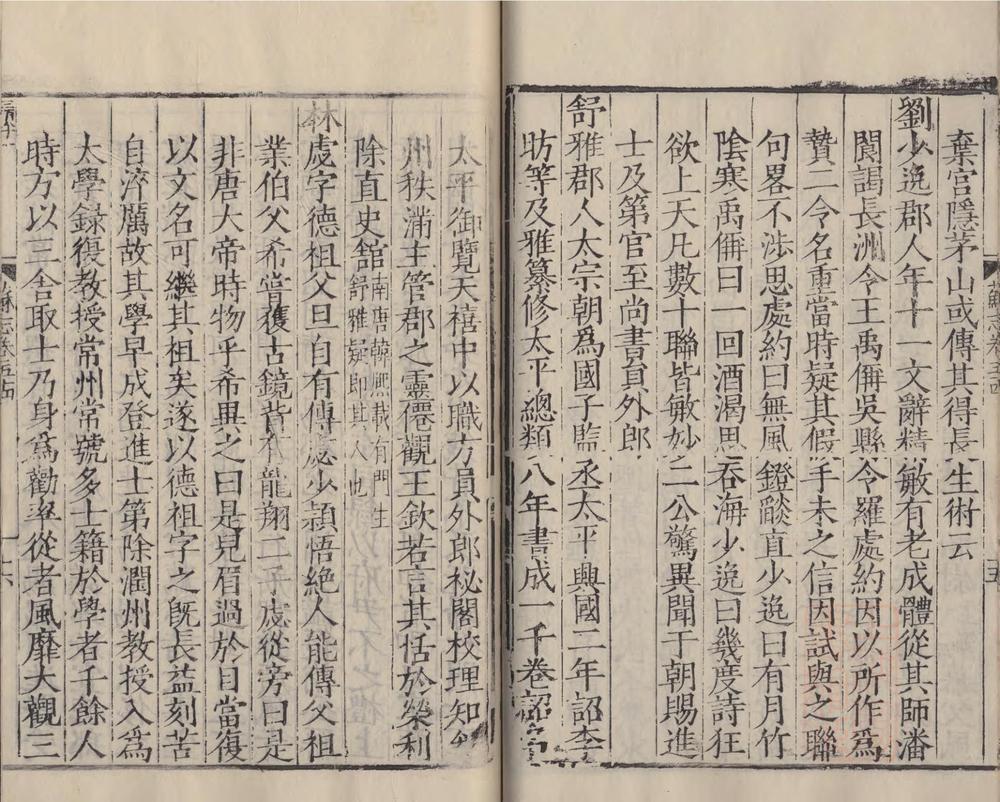 棄官隱茅山或傳其得長生術云
劉少逸郡人年十一文辭精敏有老成體從其師潘
閬謁長洲令王禹偁吳縣令羅處約因以所作爲
贄二令名重當時疑其假手未之信因試與之聯
句畧不涉思處約曰無風鐙燄直少逸曰有月竹
陰寒禹偁曰一回酒渴思吞海少逸曰幾度詩狂
欲上天凡數十聯皆敏妙二公驚異聞于朝賜進
士及第官至尚書員外郎
舒雅郡人太宗朝爲國子監丞太平興國二年詔李
昉等及雅纂修太平總類八年書成一千卷詔宣
蘇志卷五十四
十五
太平御覽天禧中以職方員外郎祕閣校理知
州秩滿主管郡之靈僊觀王欽若言其恬於榮利
除直史舘南唐韓熙載有門生
舒雅疑即其人也
林虙字德祖父旦自有傳虙少頴悟絶人能傳父祖
業伯父希嘗獲古鏡背有龍翔二乎虙從旁曰是
非唐大帝時物乎希異之曰是兒眉過於目當復
以文名可繼其祖矣遂以德祖字之旣長益刻苦
自淬厲故其學早成登進士第除潤州教授入爲
太學錄復教授常州常號多士籍於學者千餘人
時方以三舍取士乃身爲勸率從者風靡大觀三
蘇志卷五十四
十六